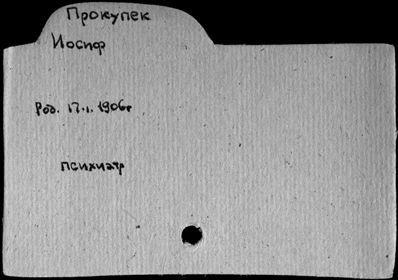 Прокупек
Иосиф
Род. 17.1.1906г
психиатр